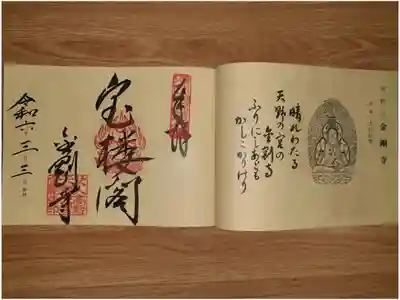 金剛寺
晴れわたる
天野の宮の
金剛寺
ふりにしあとも
かしこかりけり
奉拝
宝楼閣
金剛寺
令和六 三月 三日